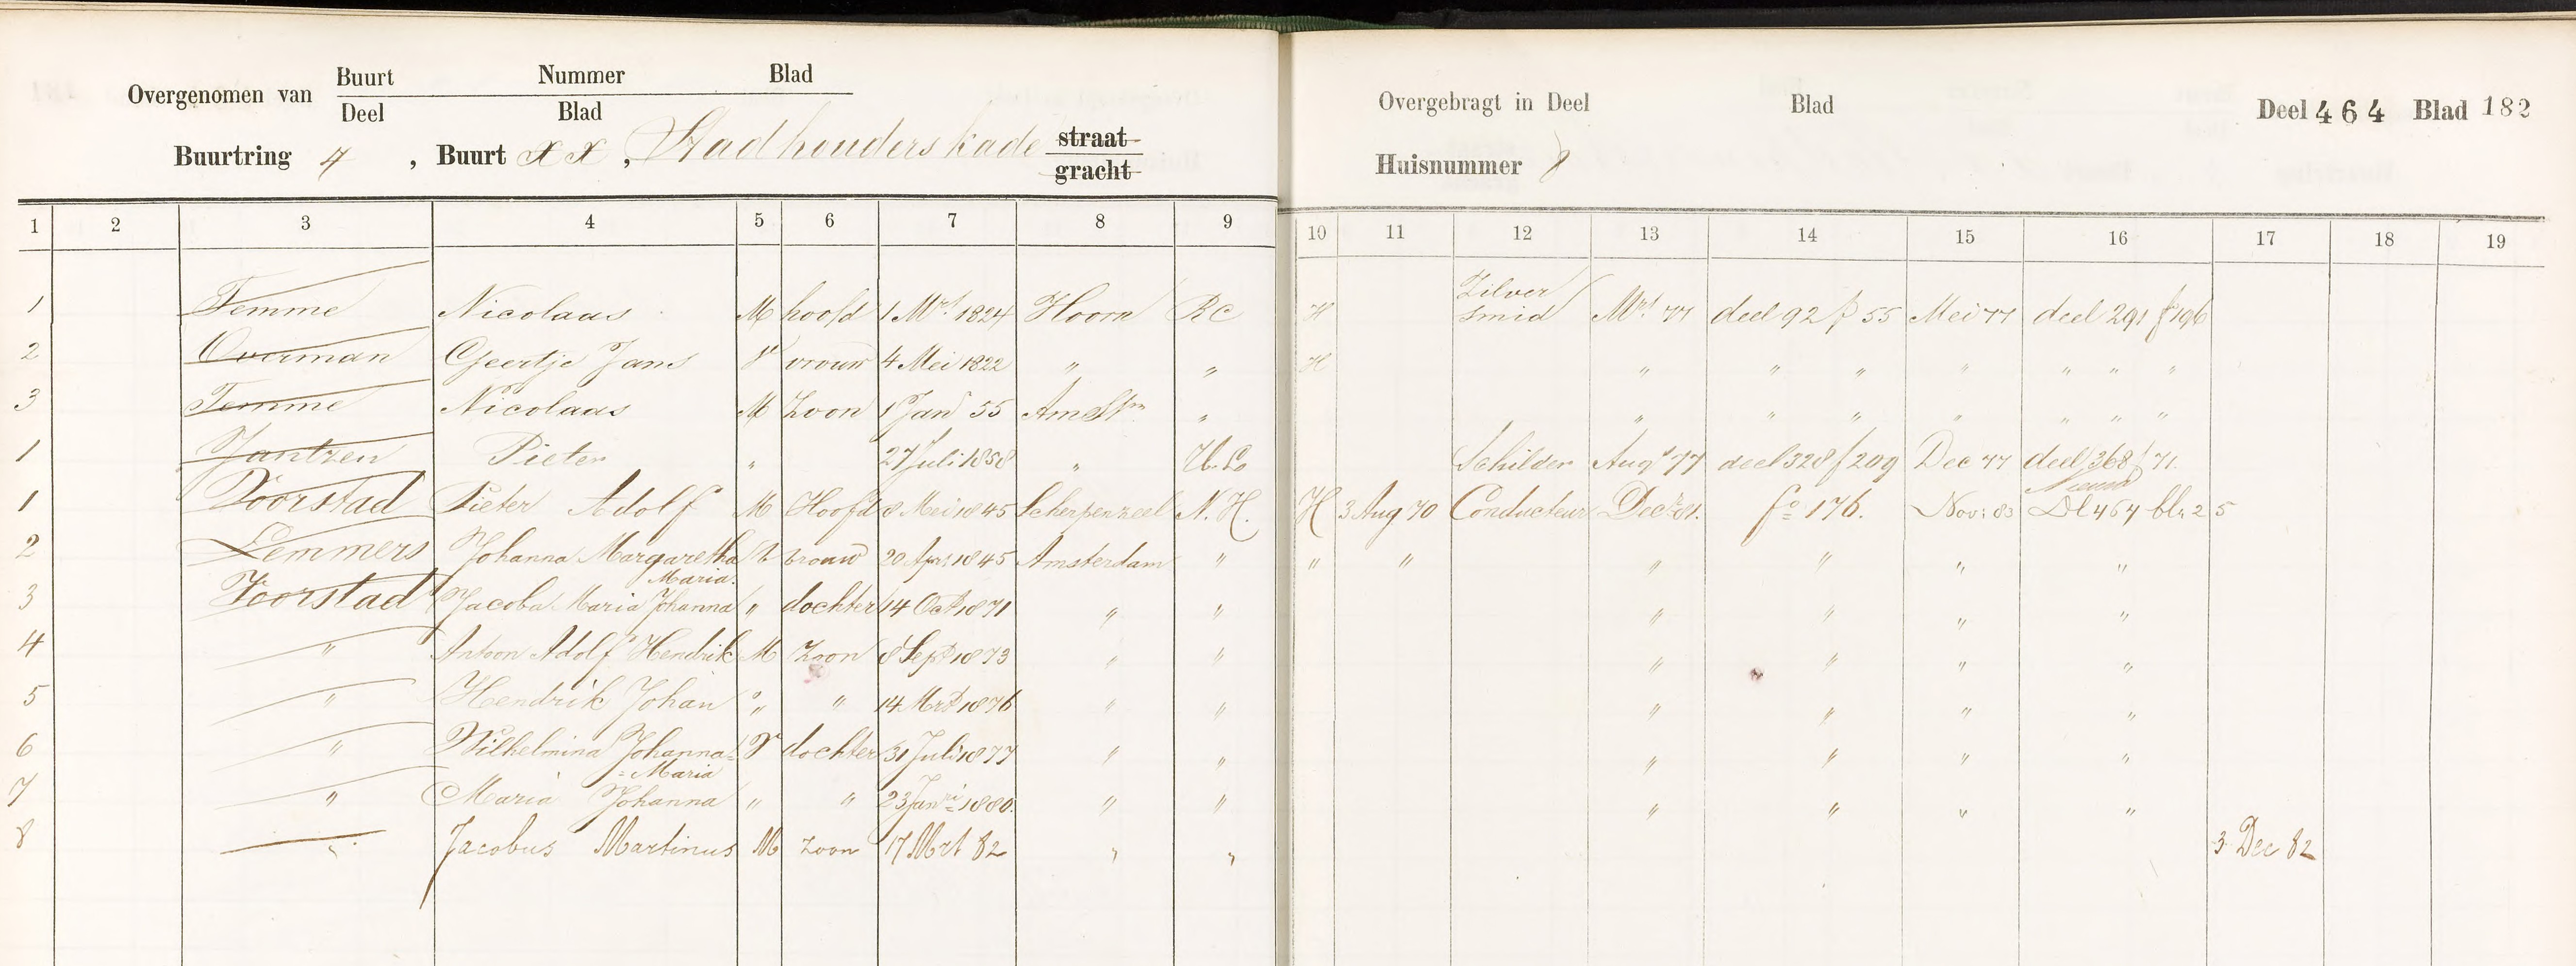 Overgenomen van Buurt Nummer Blad
Deel Blad
Buurtring 4, Buurt XX, Stadhouderskade straat gracht
Overgebragt in Deel Blad Deel 464 Blad 182
Huisnummer 8
1 2 3 4 5 6 7 8 9 10 11 12 13 14 15 16 17 18 19
1 Temme Nicolaas M hoofd 1 Mrt. 1824 Hoorn RC H Zilver smid Mrt 77 deel 92 f 55 Mei 77 deel 291 f 196
2 Overman Geertje Jans V vrouw 4 Mei 1822 " " H " " " " " " "
3 Temme Nicolaas M Zoon 1 Jan 55 Amstm " " " " " " " "
1 Jantzen Pieter " 27 Juli 1858 " H.L. Schilder Augt 77 deel 328 f 209 Dec 77 deel 368 f 71.
1 Voorstad Pieter Adolf M Hoofd 8 Mei 1845 Scherpenzeel N.H. H 3 Aug 70 Conducteur Decr 81. fo 176. Nov: 83 Nieuw Dl 464 bl. 25
2 Lemmers Johanna Margaretha Maria. V vrouw 20 Apr: 1845 Amsterdam " " " " " " "
3 Voorstad Jacoba Maria Johanna " dochter 14 Oct 1871 " " " " " "
4 " Antoon Adolf Hendrik M Zoon 8 Sept 1873 " " " " " "
5 " Hendrik Johan " " 14 Mrt 1876 " " " " " "
6 " Wilhelmina Johanna= =Maria V dochter 31 Juli 1877 " " " " " "
7 " Maria Johanna " " 23 Janri 1880. " " " " " "
8 " Jacobus Martinus M zoon 17 Mrt 82 " " 3 Dec 82